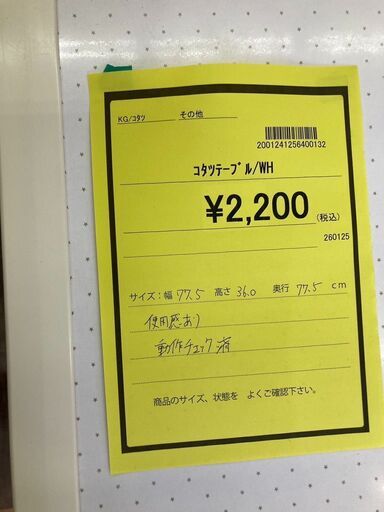 KG/コタツ その他
2001241256400132
コタツテーブル/WH
¥2,200 (税込)
260125
サイズ:幅 77.5 高さ 36.0 奥行 77.5 cm
使用感あり
動作チェック済
商品のサイズ、状態を よくご確認下さい。